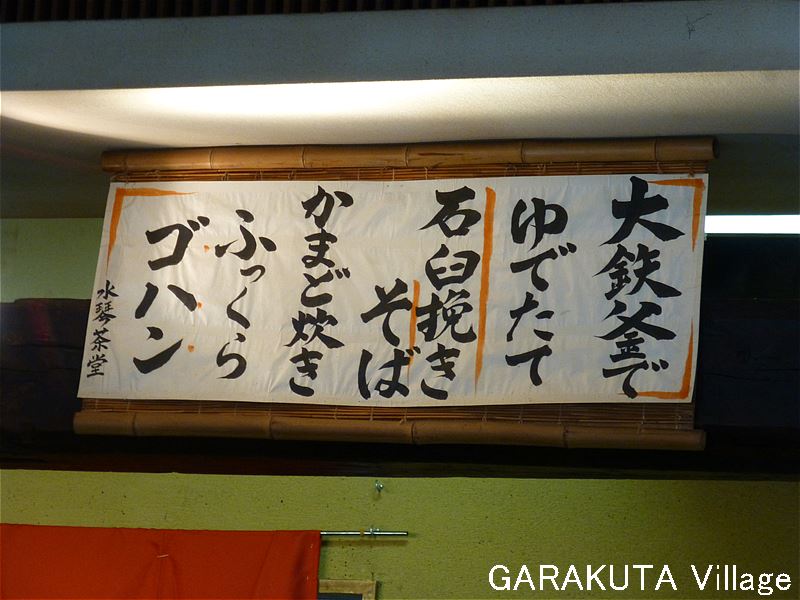 大鉄釜で
ゆでたて
石臼挽き
そば
かまど炊き
ふっくら
ゴハン
水琴茶堂
GARAKUTA Village